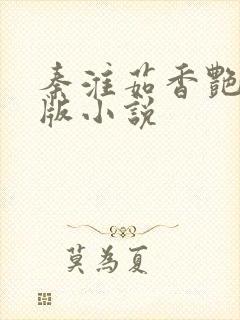 秦淮茹香艷
版小説
莫為夏